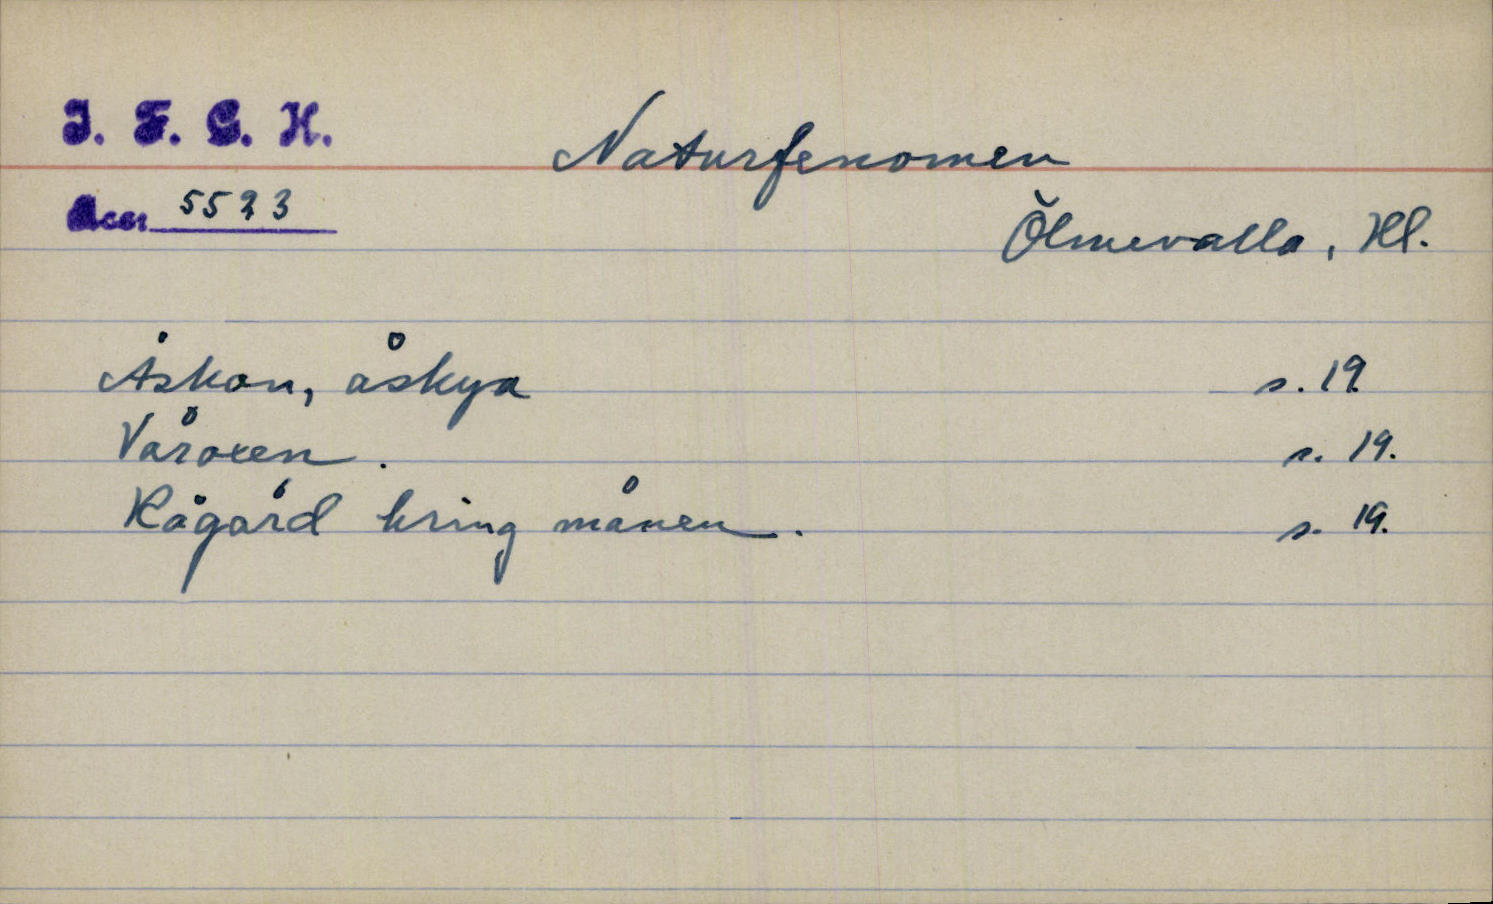 I. F. G. H.
Naturfenomen
Acer 5523
Ölmevalla, Hl.
Åskan, åskya s. 19.
Våroxen. s. 19.
Rågård kring månen. s. 19.